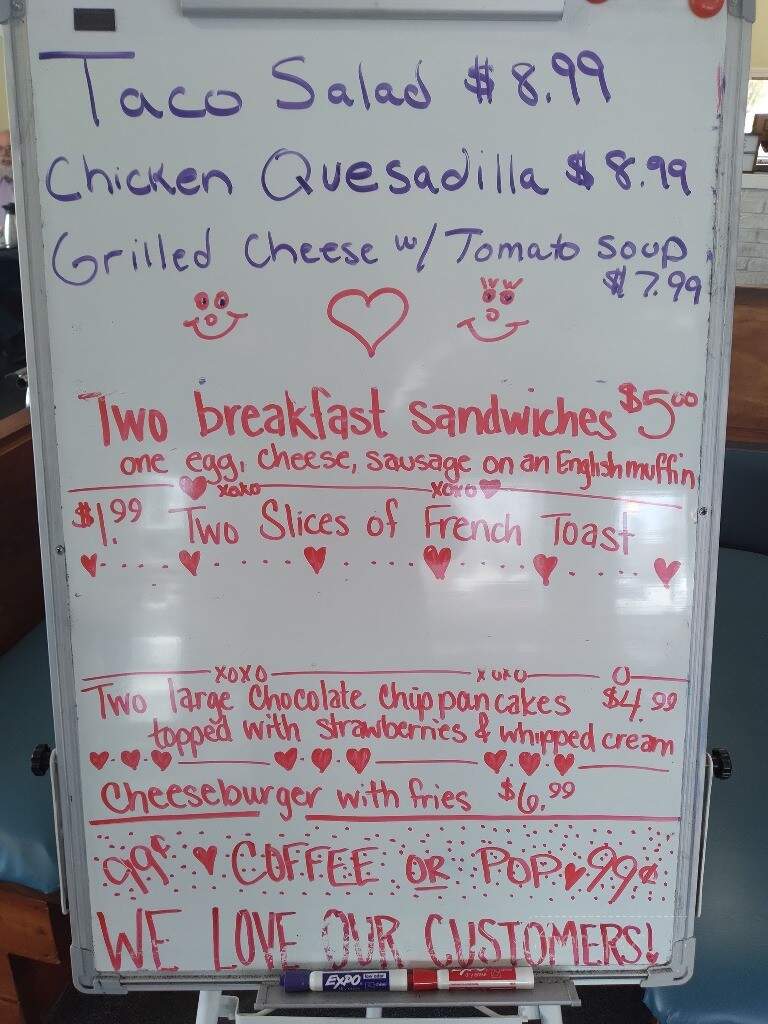 Taco Salad $8.99
Chicken Quesadilla $8.99
Grilled Cheese w/ Tomato soup
$7.99
Two breakfast sandwiches $5.00
one egg, cheese, sausage on an English muffin
xoxo xoxo
$1.99 Two Slices of French Toast
XOXO XOXO O
Two large Chocolate Chip pancakes $4.99
topped with strawberries & whipped cream
Cheeseburger with fries $6.99
99¢ COFFEE OR POP 99¢
WE LOVE OUR CUSTOMERS!
EXPO